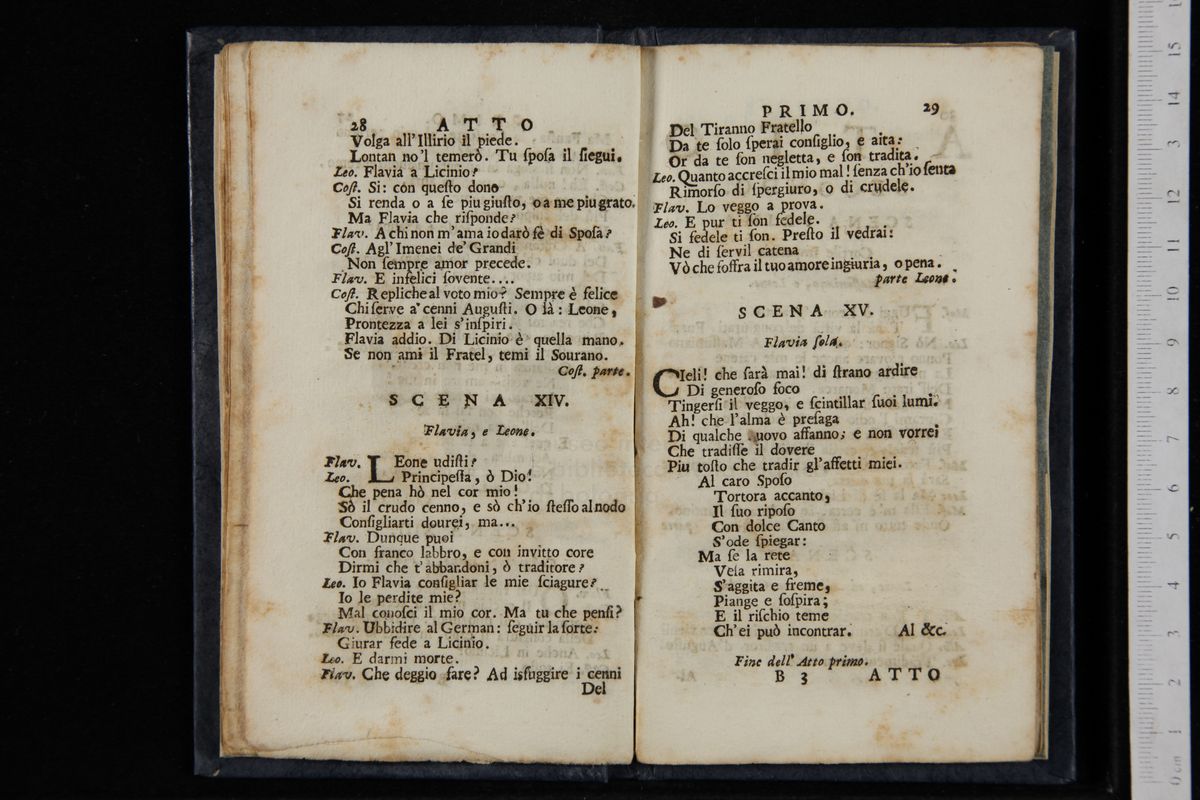 28 ATTO
Volga all'Illirio il piede.
Lontan no'l temerò. Tu ſpoſa il ſiegui.
Leo. Flavia a Licinio?
Coſt. Si: con queſto dono
Si renda o a ſe piu giuſto, o a me piu grato.
Ma Flavia che riſponde?
Flav. A chi non m'ama io darò fè di Spoſa?
Coſt. Agl'Imenei de' Grandi
Non ſempre amor precede.
Flav. E infelici ſovente....
Coſt. Repliche al voto mio? Sempre è felice
Chi ſerve a' cenni Auguſti. O là: Leone,
Prontezza a lei s'inſpiri.
Flavia addio. Di Licinio è quella mano.
Se non ami il Fratel, temi il Sourano.
Coſt. parte.
SCENA XIV.
Flavia, e Leone.
Flav. LEone udiſti?
Leo. Principeſſa, ò Dio!
Che pena hò nel cor mio!
Sò il crudo cenno, e sò ch'io ſteſſo al nodo
Conſigliarti dourei, ma...
Flav. Dunque puoi
Con franco labbro, e con invitto core
Dirmi che t'abbandoni, ò traditore?
Leo. Io Flavia conſigliar le mie ſciagure?
Io le perdite mie?
Mal conoſci il mio cor. Ma tu che penſi?
Flav. Ubbidire al German: ſeguir la ſorte:
Giurar fede a Licinio.
Leo. E darmi morte.
Flav. Che deggio fare? Ad isfuggire i cenni
Del
PRIMO. 29
Del Tiranno Fratello
Da te ſolo ſperai conſiglio, e aita:
Or da te ſon negletta, e ſon tradita.
Leo. Quanto accreſci il mio mal! ſenza ch'io ſenta
Rimorſo di ſpergiuro, o di crudele.
Flav. Lo veggo a prova.
Leo. E pur ti ſon fedele.
Si fedele ti ſon. Preſto il vedrai:
Ne di ſervil catena
Vò che ſoffra il tuo amore ingiuria, o pena.
parte Leone.
SCENA XV.
Flavia ſola.
CIeli! che ſarà mai! di ſtrano ardire
Di generoſo foco
Tingerſi il veggo, e ſcintillar ſuoi lumi.
Ah! che l'alma è preſaga
Di qualche nuovo affanno; e non vorrei
Che tradiſſe il dovere
Piu toſto che tradir gl'affetti miei.
Al caro Spoſo
Tortora accanto,
Il ſuo ripoſo
Con dolce Canto
S'ode ſpiegar:
Ma ſe la rete
Veſa rimira,
S'aggita e freme,
Piange e ſoſpira;
E il riſchio teme
Ch'ei può incontrar. Al &c.
Fine dell' Atto primo.
B 3 ATTO